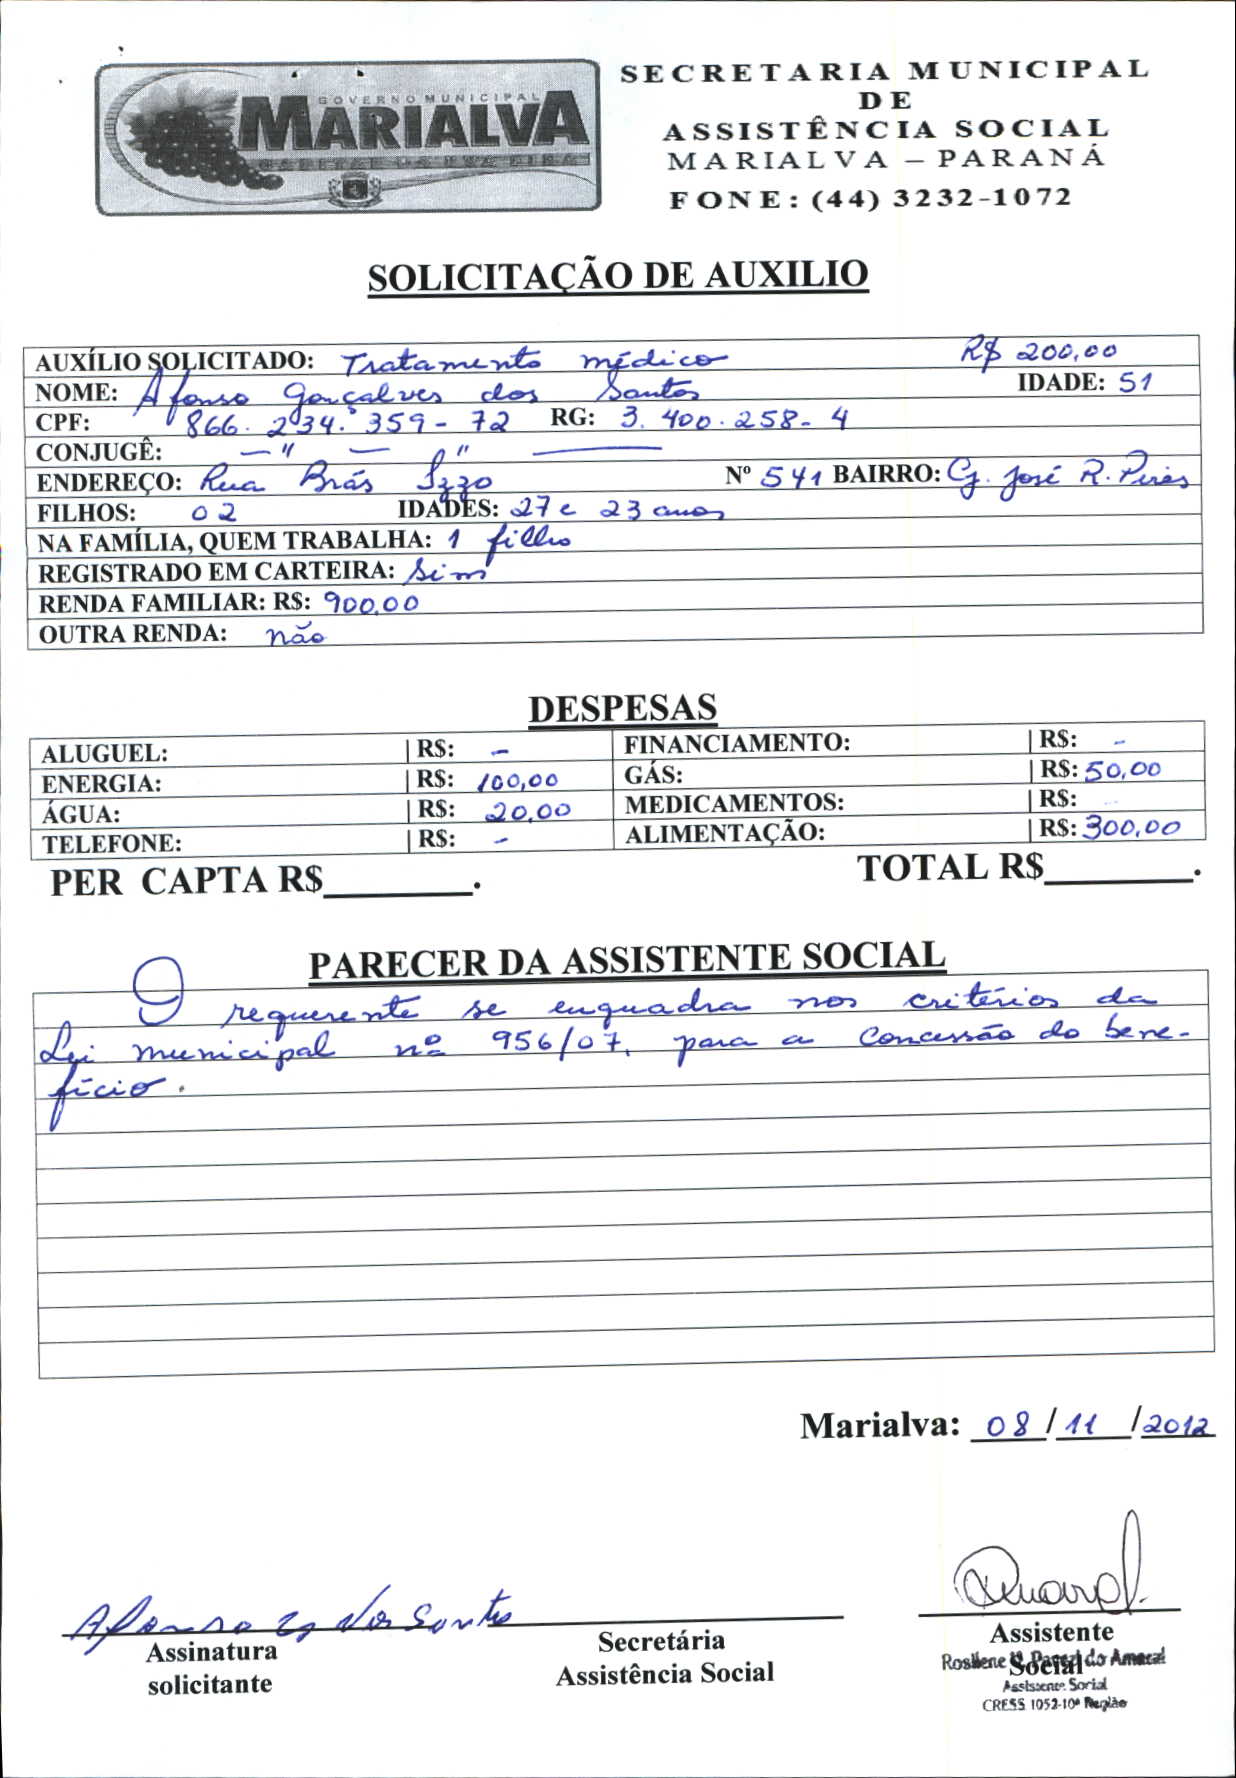 GOVERNO MUNICIPAL
MARIALVA
SECRETARIA MUNICIPAL
DE
ASSISTÊNCIA SOCIAL
MARIALVA – PARANÁ
FONE: (44) 3232-1072
SOLICITAÇÃO DE AUXILIO
AUXÍLIO SOLICITADO: Tratamento médico R$ 200,00
NOME: Afonso Gonçalves dos Santos IDADE: 51
CPF: 866.234.359-72 RG: 3.400.258-4
CONJUGÊ: — " — " —
ENDEREÇO: Rua Brás Izzo Nº 541 BAIRRO: Cj. José R. Pires
FILHOS: 02 IDADES: 27 e 23 anos
NA FAMÍLIA, QUEM TRABALHA: 1 filho
REGISTRADO EM CARTEIRA: Sim
RENDA FAMILIAR: R$: 900,00
OUTRA RENDA: não
DESPESAS
ALUGUEL: | R$: - FINANCIAMENTO: | R$: -
ENERGIA: | R$: 100,00 GÁS: | R$: 50,00
ÁGUA: | R$: 20,00 MEDICAMENTOS: | R$: -
TELEFONE: | R$: - ALIMENTAÇÃO: | R$: 300,00
PER CAPTA R$________. TOTAL R$________.
PARECER DA ASSISTENTE SOCIAL
O requerente se enquadra nos critérios da
Lei municipal nº 956/07, para a concessão do bene-
fício.
Marialva: 08/11/2012
Afonso G dos Santos
Assinatura
solicitante
Secretária
Assistência Social
Assistente
Social
Rosilene do Amaral
Assistente Social
CRESS 1052-10ª Região